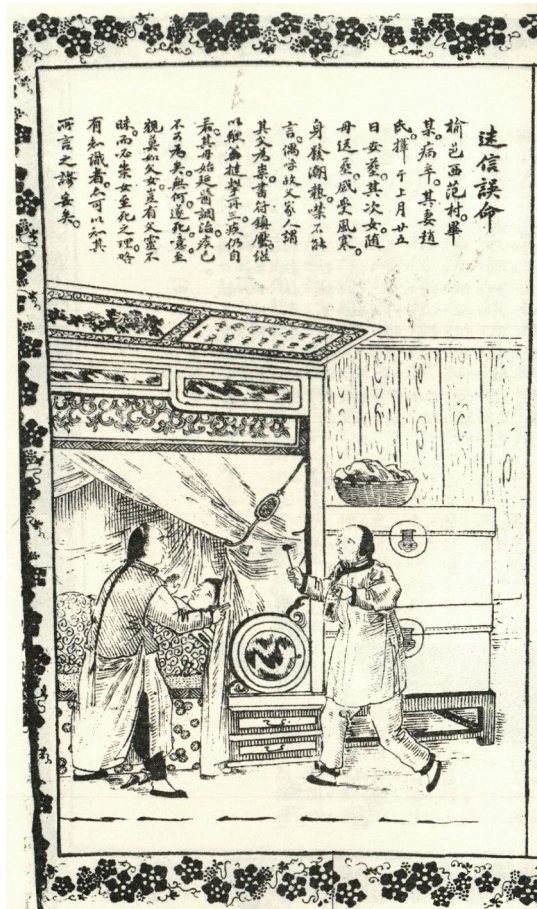 迷信誤命
榆邑西范村。畢
某病卒。其妻趙
氏擇于上月廿五
日安塟。其次女隨
母送塟。感受風寒。
身發潮熱。噤不能
言。偶 故父家人謂
其父為祟。書符鎮壓。繼
以鞭 撻擊再三。病仍自
若。其母始延醫調治。疾已
不可為矣。無何遂死。噫至
親莫如父女。豈有父靈不
昧而必祟女至死之理。略
有知識者。亦可以知其
所言之謬妄矣。